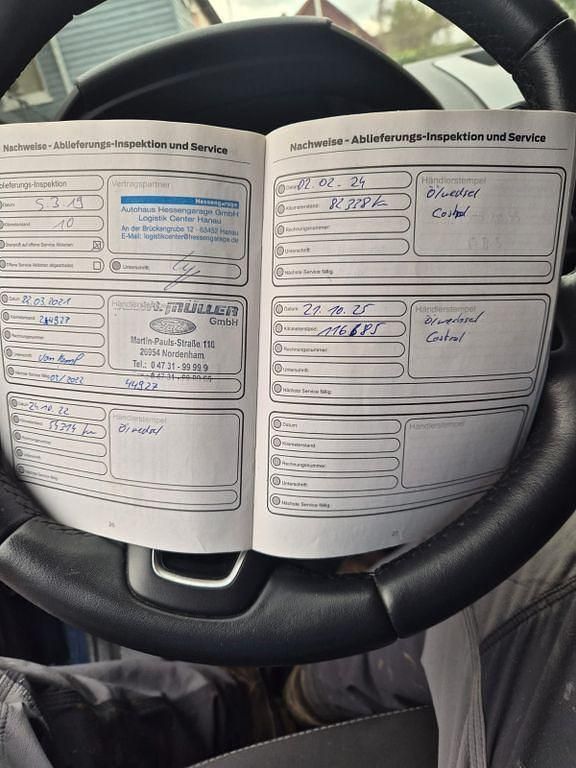 Nachweise - Ablieferungs-Inspektion und Service
blieferungs-Inspektion
Datum 5.3.19
Kilometerstand 10
Überprüft auf offene Service Aktionen
Offene Service Aktionen abgearbeitet
Vertragspartner
Hessengarage
Autohaus Hessengarage GmbH
Logistik Center Hanau
An der Brückengrube 12 - 63452 Hanau
E-Mail: logistikcenter@hessengarage.de
Unterschrift:
Datum 22.03.2021
Kilometerstand:
Rechnungsnummer:
Unterschrift:
Nächste Service fällig: 03/2022 44927
Händlerstempel
MÜLLER
GmbH
Martin-Pauls-Straße 110
26954 Nordenham
Tel.: 0 47 31 - 99 99 9
Datum 24.10.22
Kilometerstand: 59314 km
Rechnungsnummer:
Unterschrift:
Nächste Service fällig:
Händlerstempel
Ölwechsel
26
Nachweise - Ablieferungs-Inspektion und Service
Datum 02.02.24
Kilometerstand: 82338 km
Rechnungsnummer:
Unterschrift:
Nächste Service fällig:
Händlerstempel
Ölwechsel
Castrol
Datum 21.10.25
Kilometerstand: 116685
Rechnungsnummer:
Unterschrift:
Nächste Service fällig:
Händlerstempel
Ölwechsel
Castrol
Datum
Kilometerstand:
Rechnungsnummer:
Unterschrift:
Nächste Service fällig:
Händlerstempel
27